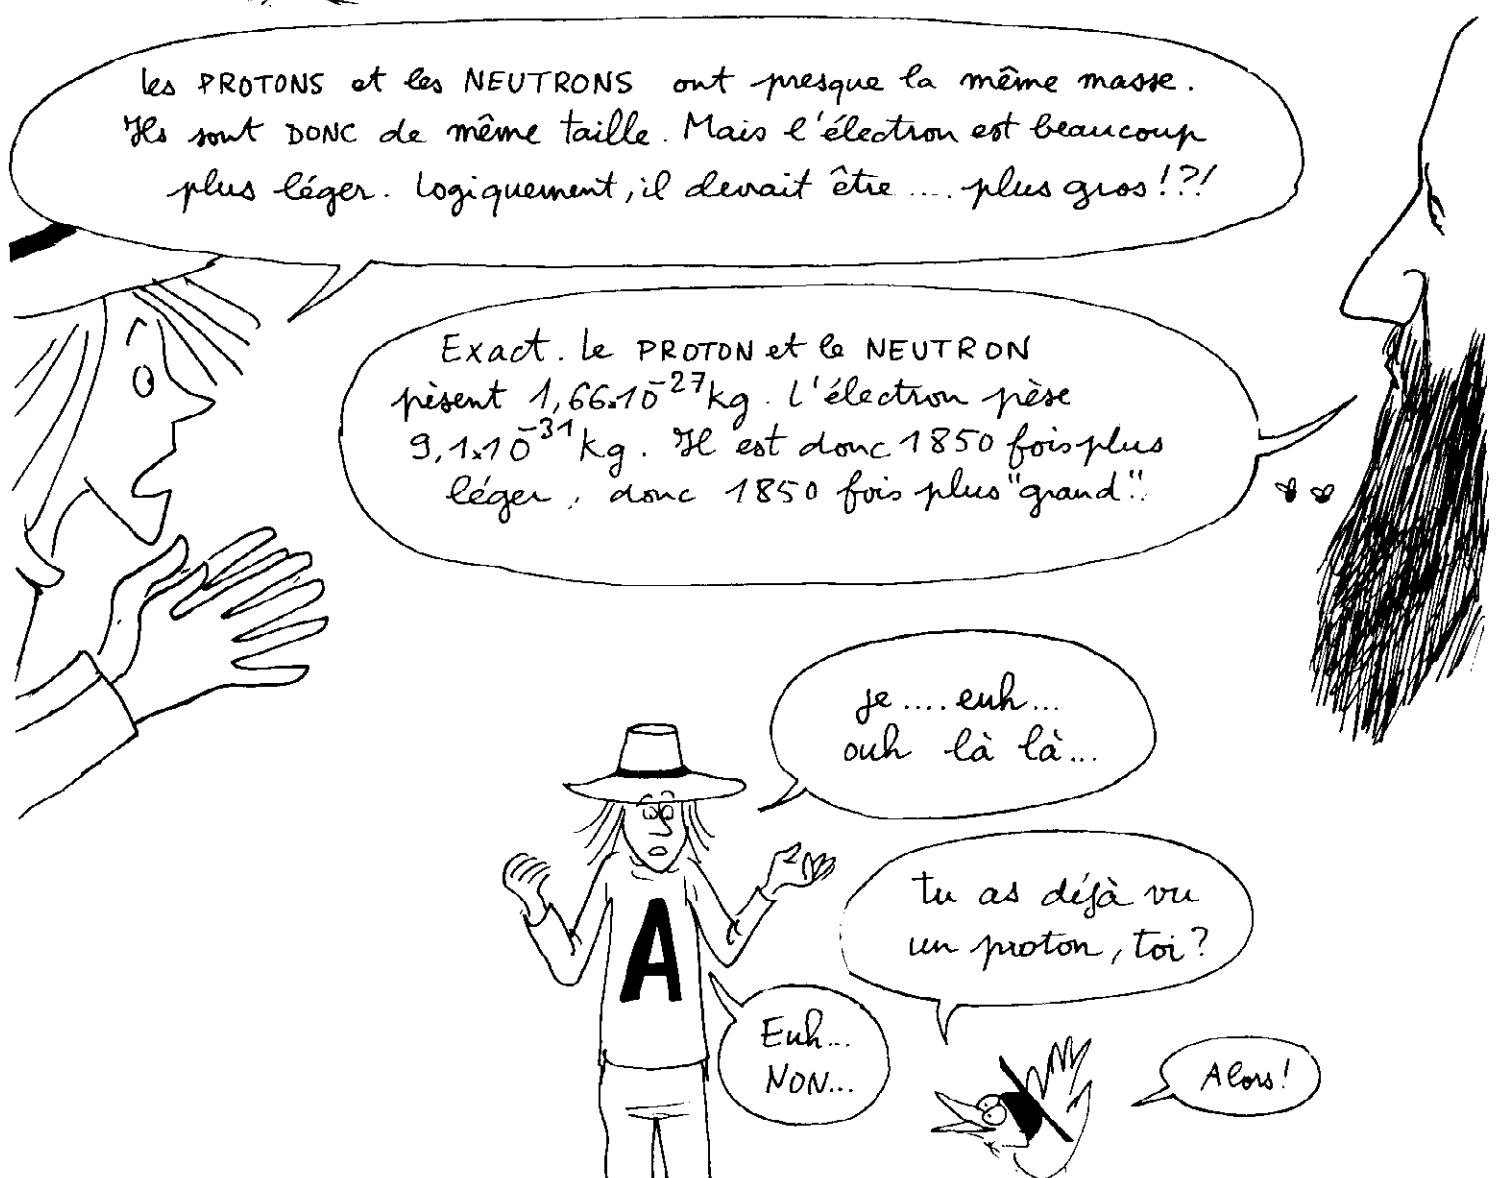 les PROTONS et les NEUTRONS ont presque la même masse.
Ils sont DONC de même taille. Mais l'électron est beaucoup
plus léger. Logiquement, il devrait être .... plus gros !?!
Exact. Le PROTON et le NEUTRON
pèsent 1,66x10^-27 kg. L'électron pèse
9,1x10^-31 kg. Il est donc 1850 fois plus
léger, donc 1850 fois plus "grand".
je .... euh...
ouh là là...
tu as déjà vu
un proton, toi?
A
Euh...
NON...
Alors!